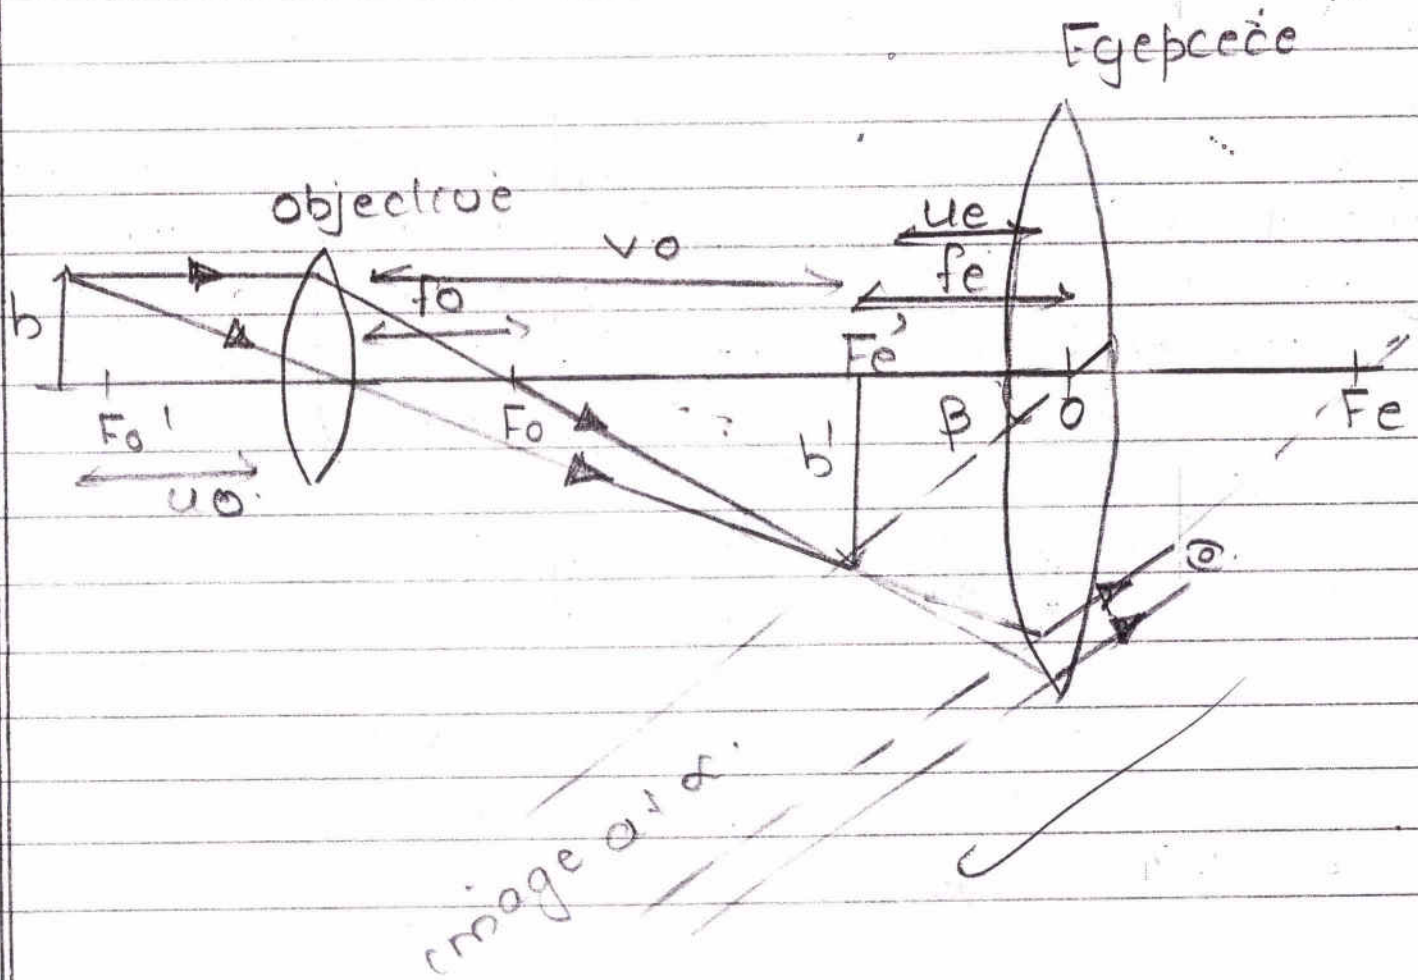 Eyepiece
objective
ue
vo
fe
fo
h
Fe'
Fo'
Fo
β
O
Fe
h'
uo
image at α